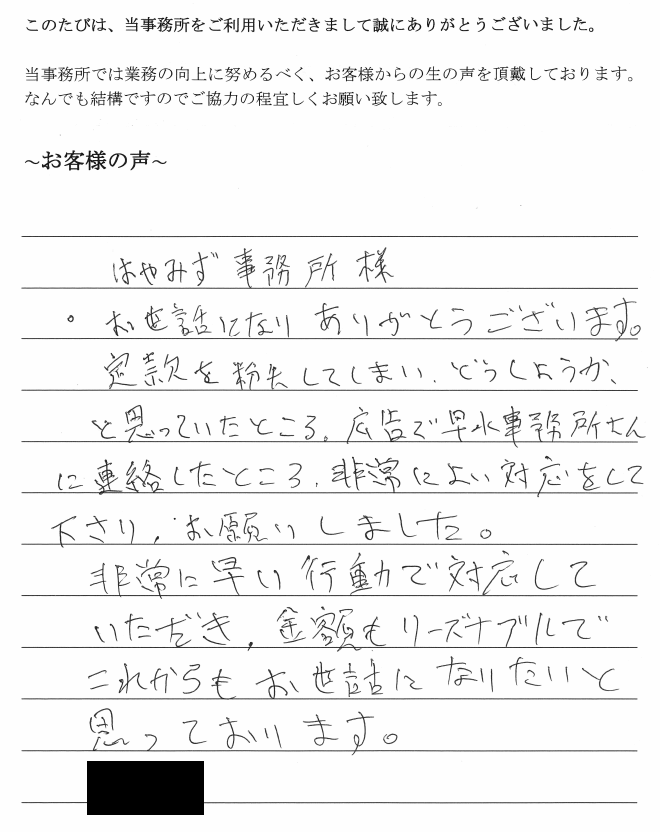 このたびは、当事務所をご利用いただきまして誠にありがとうございました。
当事務所では業務の向上に努めるべく、お客様からの生の声を頂戴しております。
なんでも結構ですのでご協力の程宜しくお願い致します。
~お客様の声~
はやみず事務所様
。お世話になりありがとうございます。
定款を紛失してしまい、どうしようか、
と思っていたところ。広告で早水事務所さん
に連絡したところ、非常によい対応をして
下さり、お願いしました。
非常に早い行動で対応して
いただき、金額もリーズナブルで
これからもお世話になりたいと
思っております。